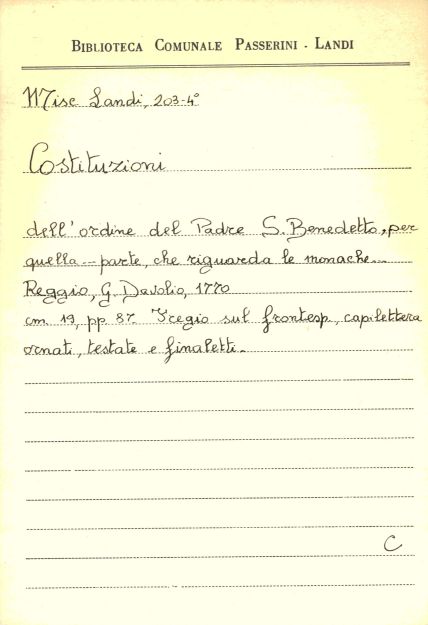 BIBLIOTECA COMUNALE PASSERINI - LANDI
Misc Landi, 203-4°
Costituzioni
dell'ordine del Padre S. Benedetto, per
quella -- parte, che riguarda le monache...
Reggio, G. Davolio, 1770
cm. 19, pp. 87. Fregio sul frontesp., capilettera
ornati, testate e finaletti.
C